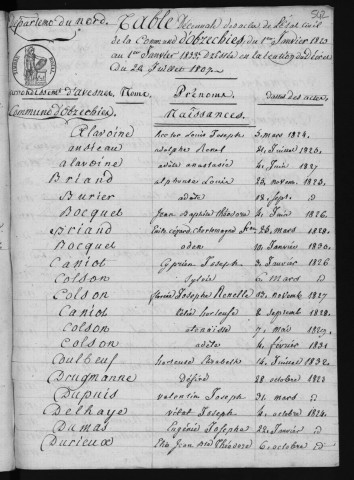 Département du nord. Table Décennale des actes de l'état civil
de la Commune d'obrechies, du 1er Janvier 1823
au 1er Janvier 1833
du 20 Juillet 1807
arrondissemt d'avesnes Noms Prénoms dates des actes
Commune d'obrechies. Naissances.
alavoine hector Louis Joseph 3 mars 1824.
ansieau adolphe
alavoine adèle anastasie 4 Juin 1827
Briand alphonse Louis 23 novem. 1823.
Burier adèle 18 Sept. d
Bocquet Jean Baptiste théodore 4 Juin 1826
Briand 28 mars 1828.
Bocquet oden 10 Janvier 1830.
Caniot Cyprien Joseph 3 Janvier 1826
Colson Sylvie 6 mars d
Colson Josephe 13 novemb 1827
Caniot hortense 8 Septemb 1828.
Colson 7 mai 1829.
Colson adèle 4 février 1831
Dulbeuf hortense Elizabeth 14 Juillet 1832.
Drugmanne Désiré 28 octobre 1823
Dupuis valentin Joseph 31 mars d
Delhaye vital Joseph 4 octobre 1824.
Dumas Eugénie Josephe 22 Janvier d
Durieux Jean théodore 6 octobre d